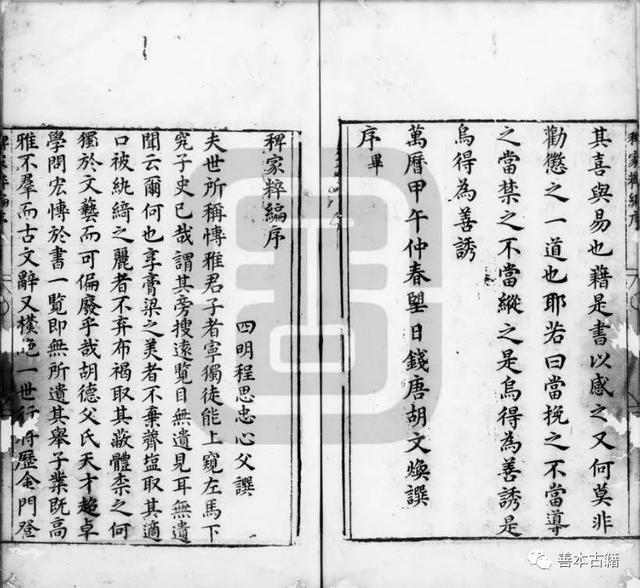 其喜與易也藉是書以感之又何莫非
勸懲之一道也耶若曰當挽之不當導
之當禁之不當縱之是烏得為善誘是
烏得為善誘
萬曆甲午仲春朢日錢唐胡文煥譔
序畢
稗家粹編序
四明程思忠心父譔
夫世所稱慱雅君子者寧獨徒能上窺左馬下
究子史已哉謂其旁搜遠覽目無遺見耳無遺
聞云爾何也享膏粱之美者不棄虀塩取其適
口被紈綺之麗者不弃布褐取其蔽體柰之何
獨於文藝而可偏廢乎哉胡德父氏天才超卓
學問宏慱於書一覧即無所遺其舉子業既高
雅不羣而古文辭又橫絕一世行將歷金門登
稗家粹編序
善本古籍